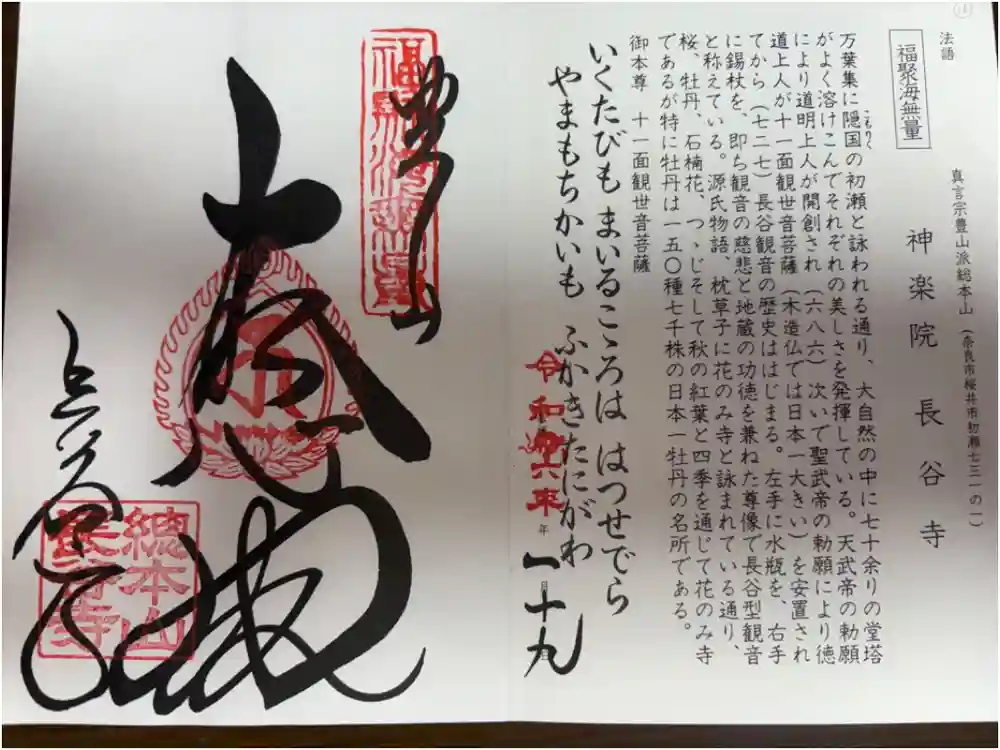 法語
福聚海無量
真言宗豊山派総本山(奈良市桜井市初瀬七三一の一)
神楽院 長谷寺
万葉集に隠国の初瀬と詠われる通り、大自然の中に七十余りの堂塔
こもりく
がよく溶けこんでそれぞれの美しさを発揮している。天武帝の勅願
により道明上人が開創され(六八六)次いで聖武帝の勅願により徳
道上人が十一面観世音菩薩(木造仏では日本一大きい)を安置され
てから(七二七)長谷観音の歴史ははじまる。左手に水瓶を、右手
に錫杖を、即ち観音の慈悲と地蔵の功徳を兼ねた尊像で長谷型観音
と称えている。源氏物語、枕草子に花のみ寺と詠まれている通り、
桜、牡丹、石楠花、つゝじそして秋の紅葉と四季を通じて花のみ寺
であるが特に牡丹は一五〇種七千株の日本一牡丹の名所である。
御本尊 十一面観世音菩薩
いくたびも まいるこころは はつせでら
やまもちかいも ふかきたにがわ
令和六年
年
一月十九日
福聚海無量
豊山
大悲閣
長谷寺
總本山
長谷寺